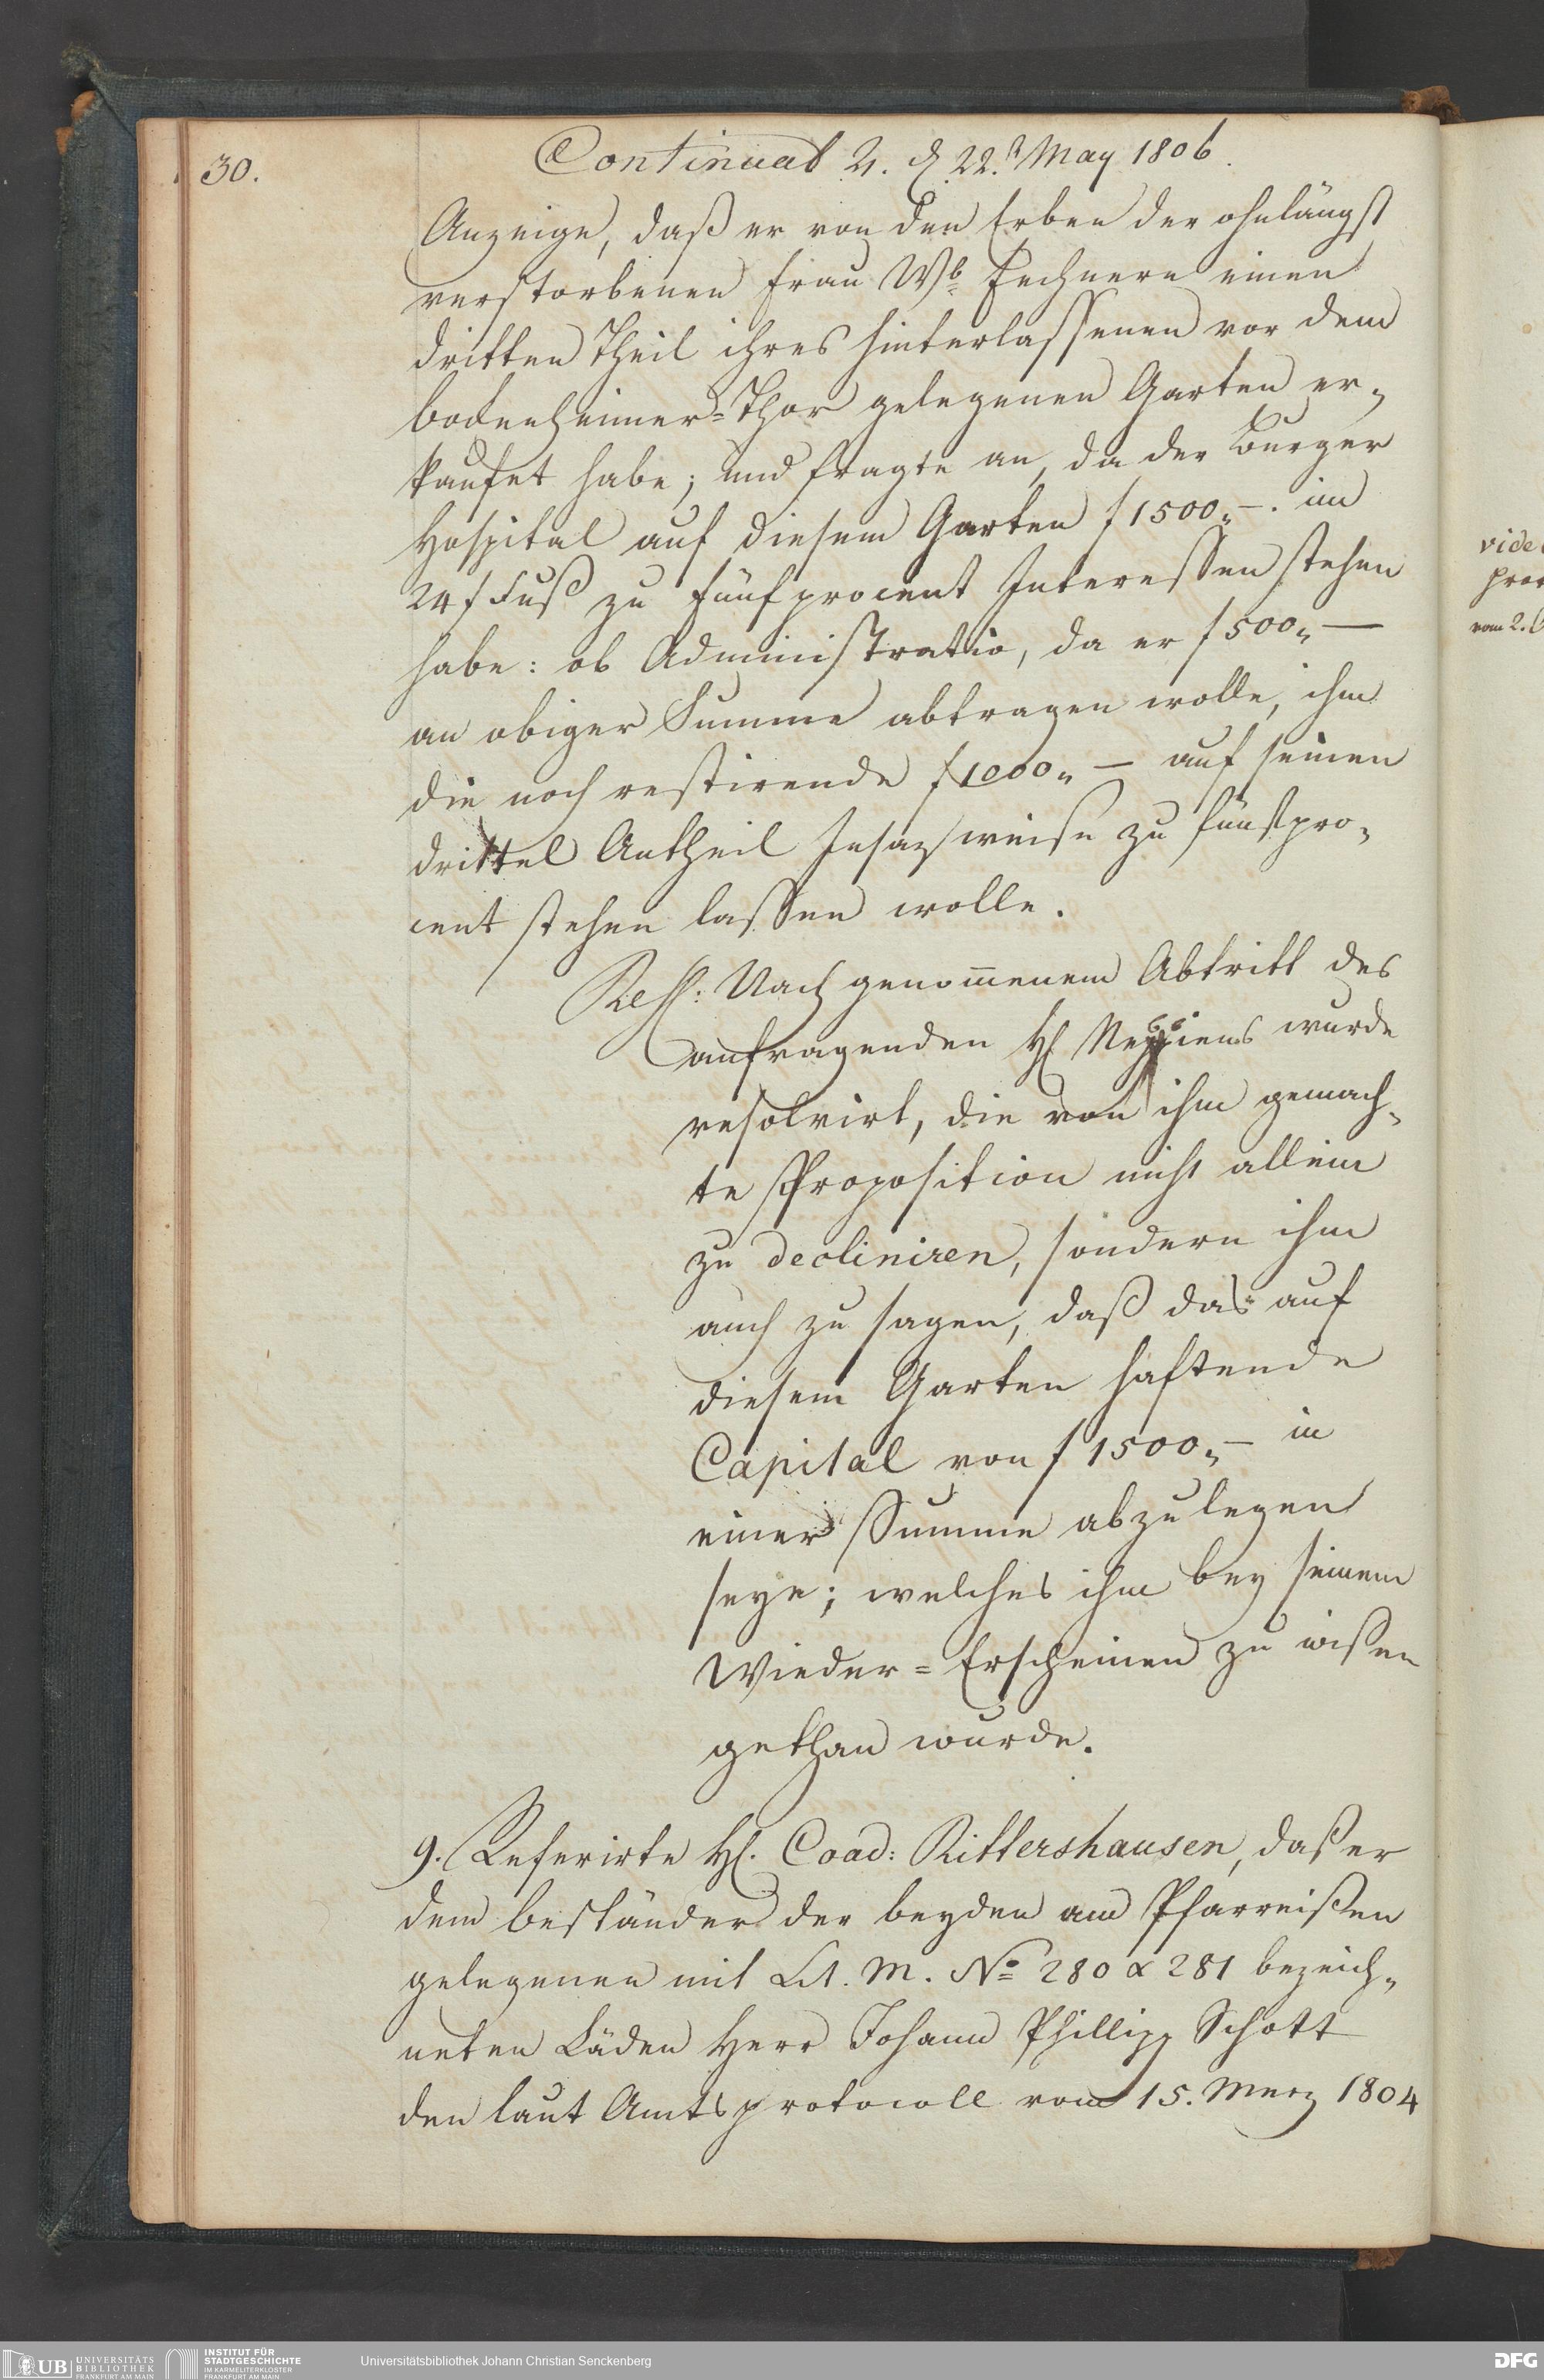 30.
Continuat 21. d. 22.t May 1806.
Anzeige, daß er von den Erben der ohnlängst
verstorbenen Frau Wb Lechnern einen
dritten Theil ihres hinterlassenen vor dem
Bockenheimer=Thor gelegenen Garten er„
kaufet habe; und fragte an, da der Burger
Hospital auf diesem Garten f 1500„ —. im
24 f Fuß zu fünf procent Interessen stehen
habe: ob Administratio, da er f 500„ —
an obiger Summe abtragen wolle, ihm
die noch restirende f 1000„ — auf seinen
drittel Antheil Insaz weise zu fünfpro„
cent stehen lassen wolle.
Resl: Nach genom̅enem Abtritt des
anfragenden H wurde
resolvirt, die von ihm gemach„
te Proposition nicht allein
zu decliniren, sondern ihm
auch zu sagen, daß das auf
diesem Garten haftende
Capital von f 1500„ — in
einer Summe abzulegen
seye; welches ihm bey seinem
Wieder=Erscheinen zu wißen
gethan wurde.
9. Referirte H. Coad: Rittershausen, daß er
dem beständer der beyden am Pfarreisen
gelegenen mit Lit. M. No 280 & 281 bezeich„
neten Läden Herr Johann Phillipp Schott
den laut Amtsprotocoll vom 15. Merz 1804
vide
vom 2.
UB UNIVERSITÄTS
BIBLIOTHEK
FRANKFURT AM MAIN
INSTITUT FÜR
STADTGESCHICHTE
IM KARMELITERKLOSTER
FRANKFURT AM MAIN
Universitätsbibliothek Johann Christian Senckenberg
DFG